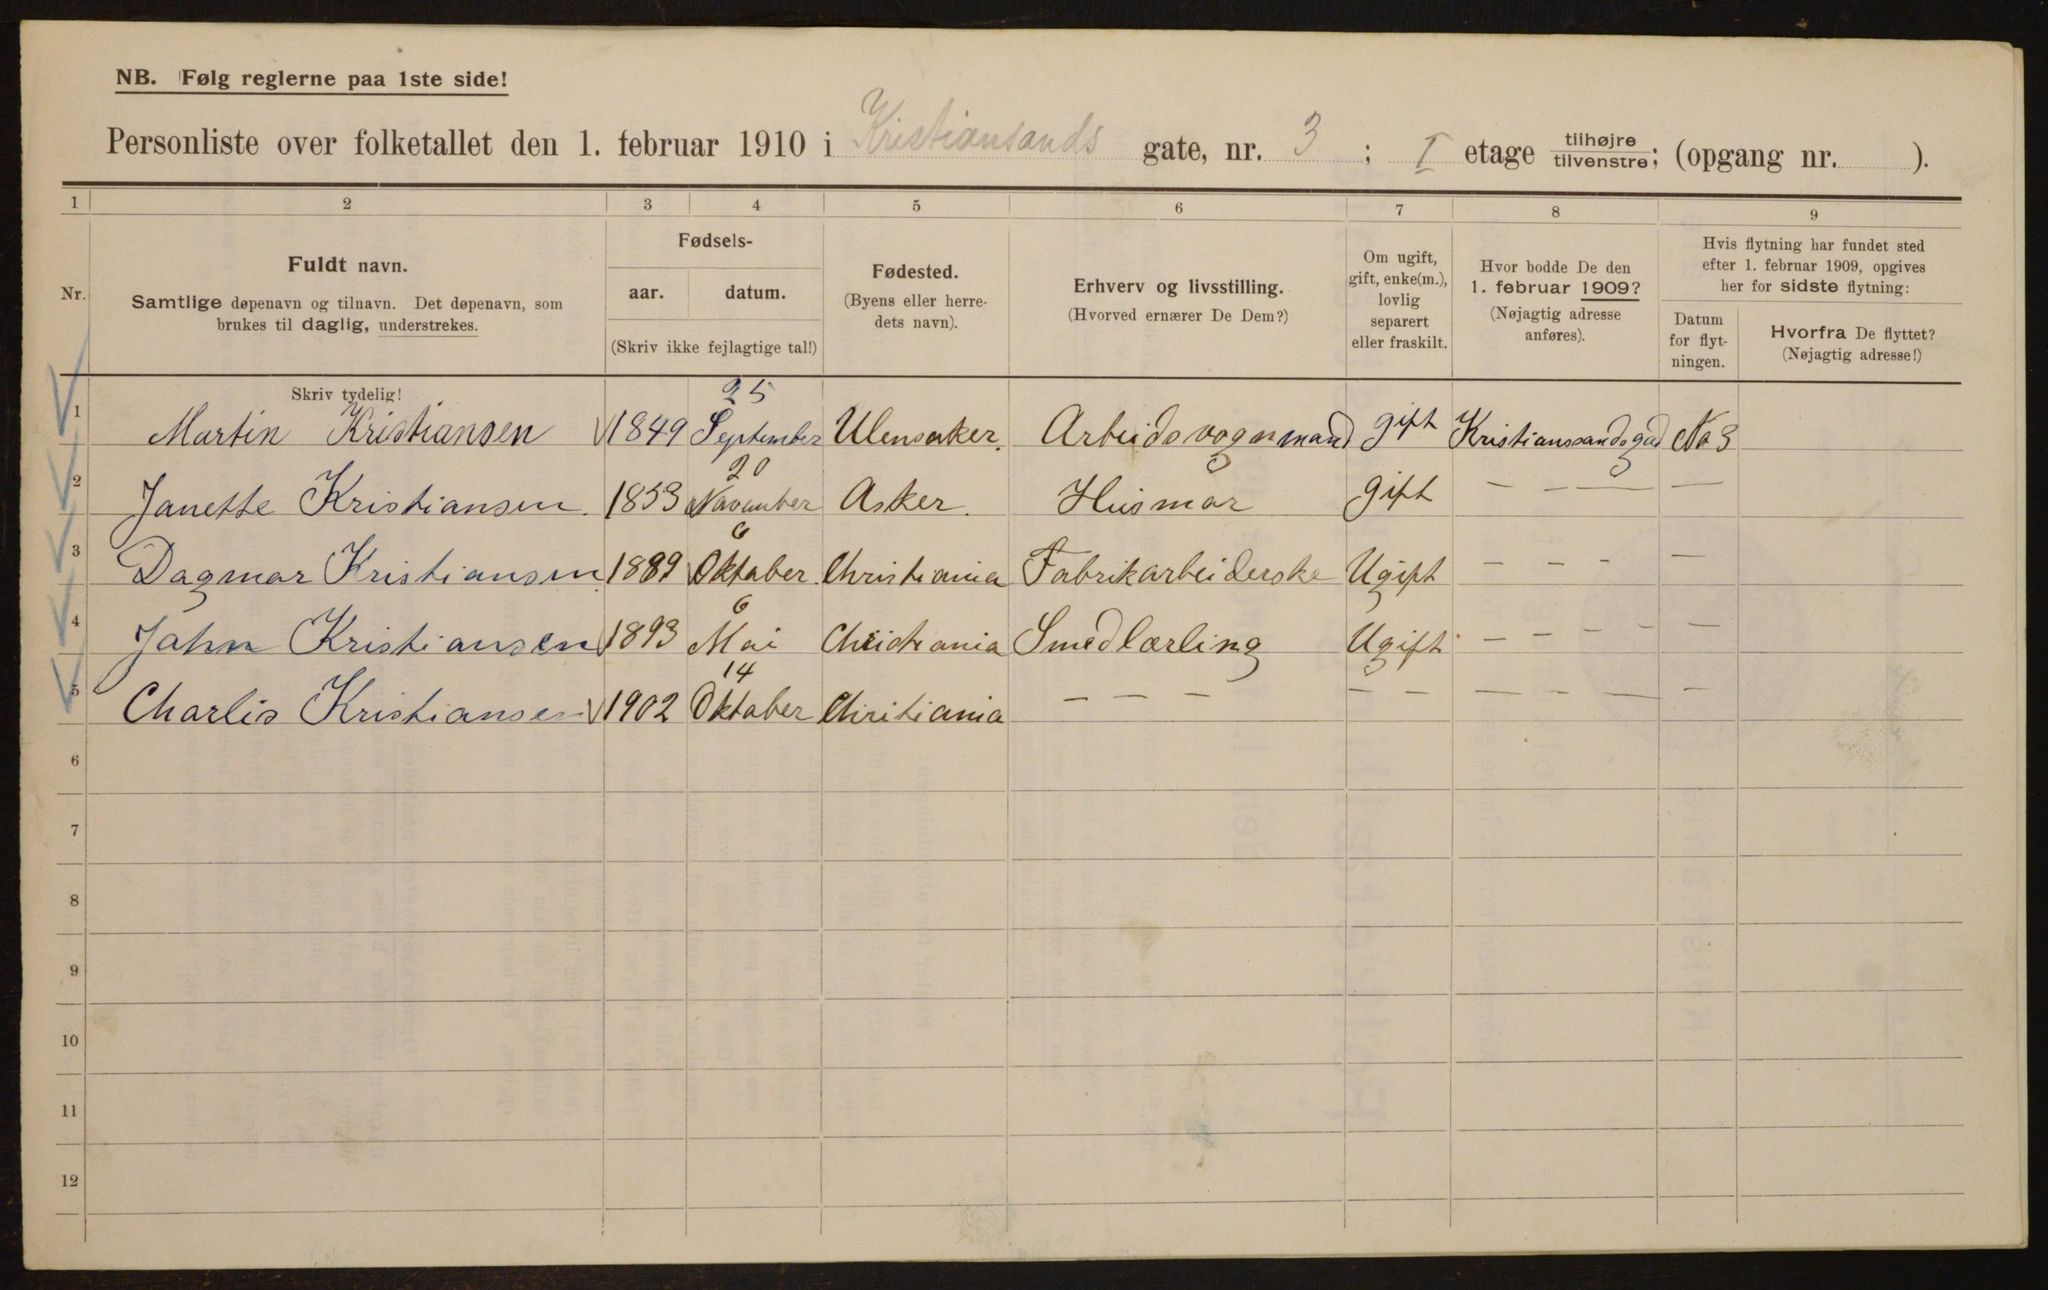 NB. Følg reglerne paa 1ste side!
Personliste over folketallet den 1. februar 1910 i Kristiansands gate, nr. 3 ; I etage tilhøjre tilvenstre; (opgang nr. ).
1 2 3 4 5 6 7 8 9
Nr.
Fuldt navn.
Samtlige døpenavn og tilnavn. Det døpenavn, som
brukes til daglig, understrekes.
Fødsels-
aar. datum.
(Skriv ikke fejlagtige tal!)
Fødested.
(Byens eller herre-
dets navn).
Erhverv og livsstilling.
(Hvorved ernærer De Dem?)
Om ugift,
gift, enke(m.),
lovlig
separert
eller fraskilt.
Hvor bodde De den
1. februar 1909?
(Nøjagtig adresse
anføres).
Hvis flytning har fundet sted
efter 1. februar 1909, opgives
her for sidste flytning:
Datum
for flyt-
ningen.
Hvorfra De flyttet?
(Nøjagtig adresse!)
Skriv tydelig!
1 Martin Kristiansen 1849 25 September Ulensaker. Arbeidsvognmand gift Kristianssandsgad No 3
2 Janette Kristiansen. 1853 20 November Asker. Husmor gift — — — —
3 Dagmar Kristiansen. 1889 6 Oktober. Christiania Fabrikarbeiderske Ugift – – – —
4 John Kristiansen 1893 6 Mai Christiania Smedlærling Ugift – – – – —
5 Charlis Kristiansen 1902 14 Oktober Chritiania – – – – – — – – –
6
7
8
9
10
11
12